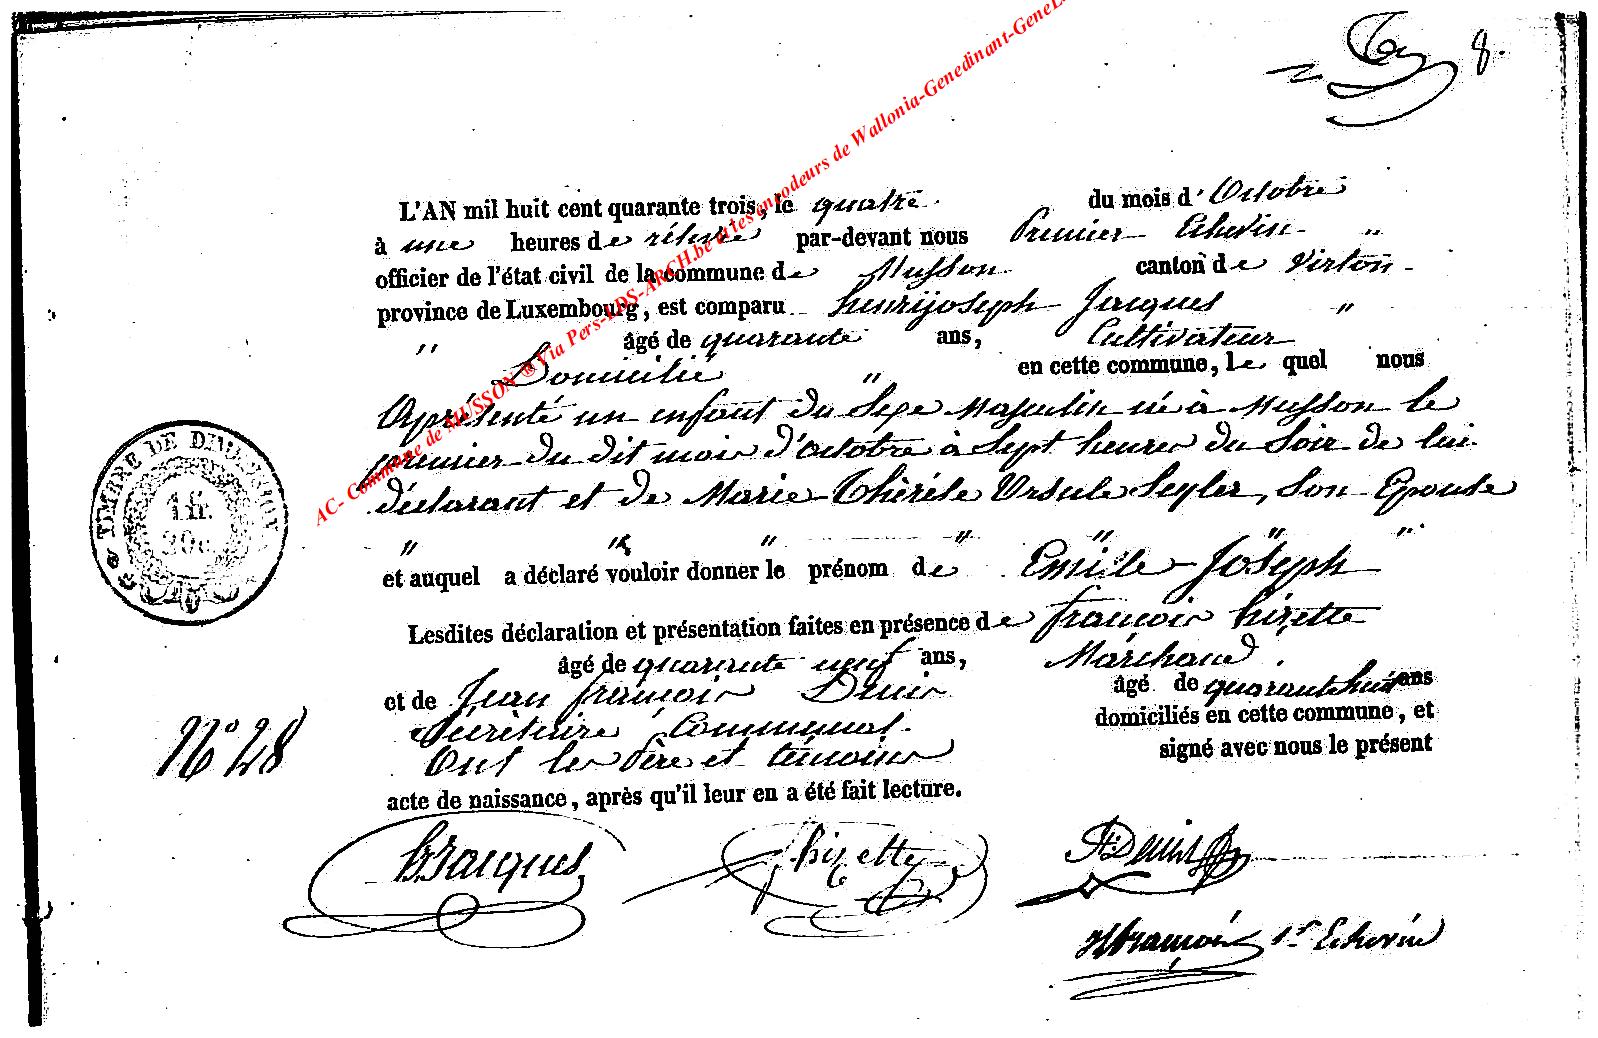 8.
AC- Commune de MUSSON @ Via Pers-LDS-ARCH.be et les encodeurs de Wallonia-Genedinant-GeneL
L'AN mil huit cent quarante trois, le quatre du mois d'Octobre
à une heures de rélevée par-devant nous Premier Echevin "
officier de l'état civil de la commune de Musson canton de Virton
province de Luxembourg, est comparu henrijoseph Jacques "
" âgé de quarante ans, Cultivateur
Domicilié " en cette commune, le quel nous
a présenté un enfant du Sexe Masculin né à Musson le
premier du dit mois d'octobre à Sept heures du Soir de lui
déclarant et de Marie-Thérése Ursule Seyler, Son Epouse
" " " " " "
et auquel a déclaré vouloir donner le prénom de Emile-Joseph
Lesdites déclaration et présentation faites en présence de françois hizette
âgé de quarante neuf ans, Marchand.
et de Jean françois Denis âgé de quarante huit ans
Sécrétaire Communal. domiciliés en cette commune, et
Ont les Père et témoins signé avec nous le présent
acte de naissance, après qu'il leur en a été fait lecture.
N° 28
TIMBRE DE DIMENSION
1 fr.
20 c.
hJJacques
hizette
Denis
1er Echevin